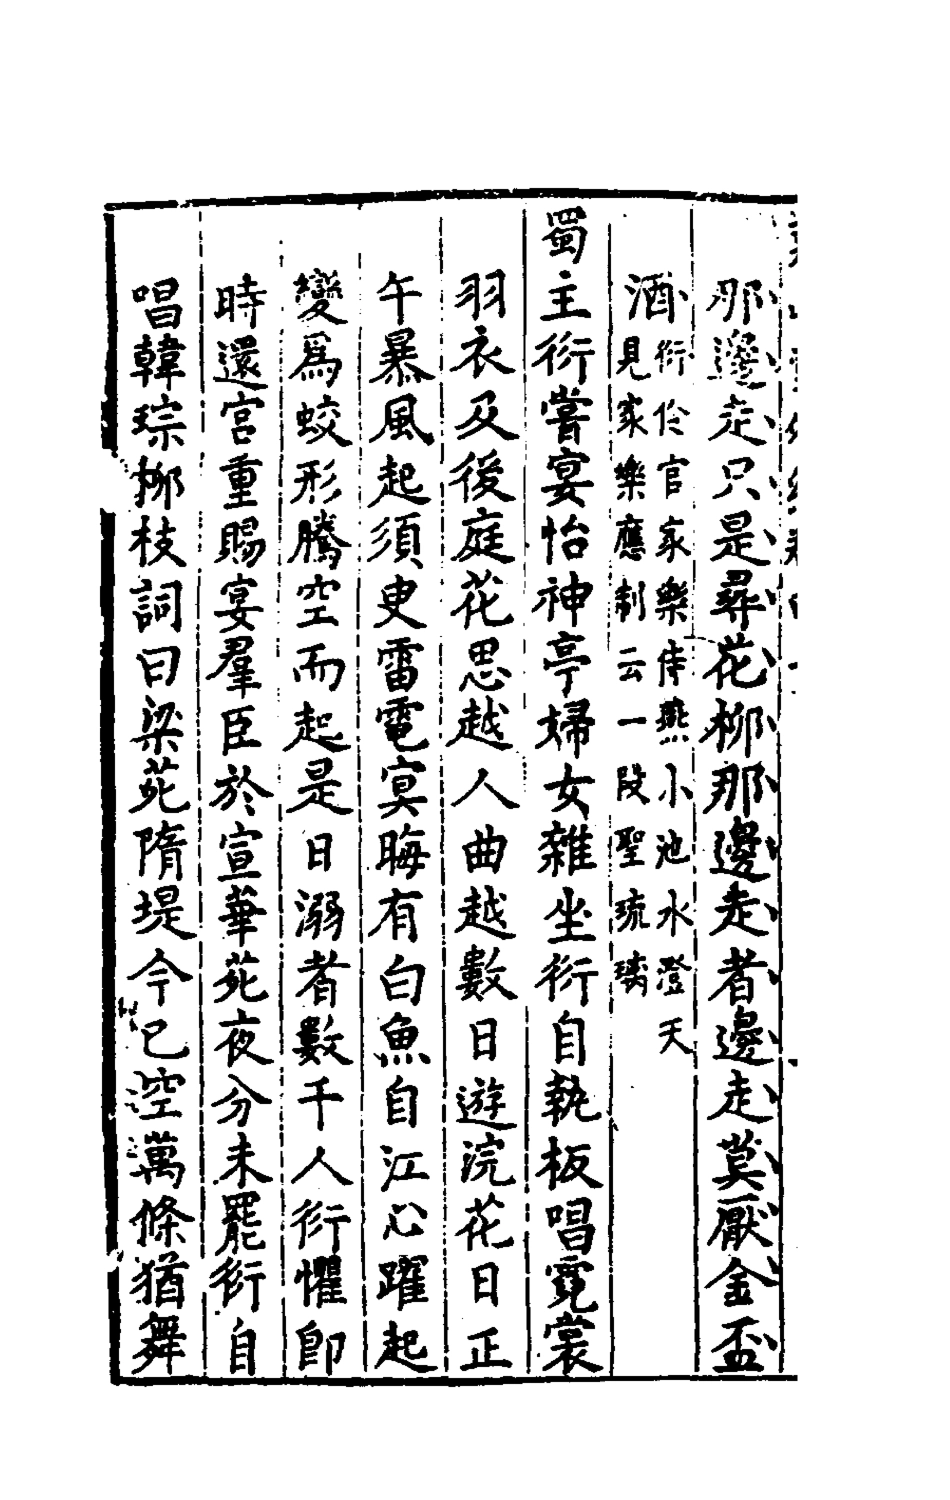 那邊走只是尋花柳那邊走者邊走莫厭金盃
酒
衍伶官家樂侍燕小池水澄天
見家樂應制云一段聖琉璃
蜀主衍嘗宴怡神亭婦女雜坐衍自執板唱霓裳
羽衣及後庭花思越人曲越數日遊浣花日正
午暴風起須臾雷電冥晦有白魚自江心躍起
變爲蛟形騰空而起是日溺者數千人衍懼卽
時還宮重賜宴羣臣於宣華苑夜分未罷衍自
唱韓琮柳枝詞曰梁苑隋堤今已空萬條猶舞